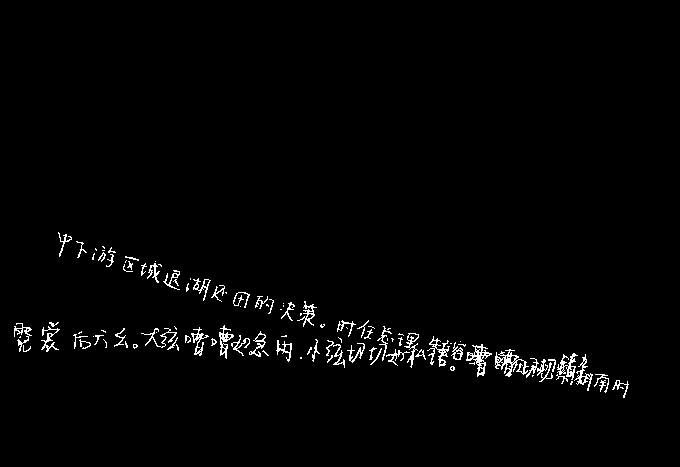 中下游区域退湖还田的决策。时任总理湖南时
霓裳后六幺。大弦嘈嘈如急雨，小弦切切如私语。嘈嘈切切错